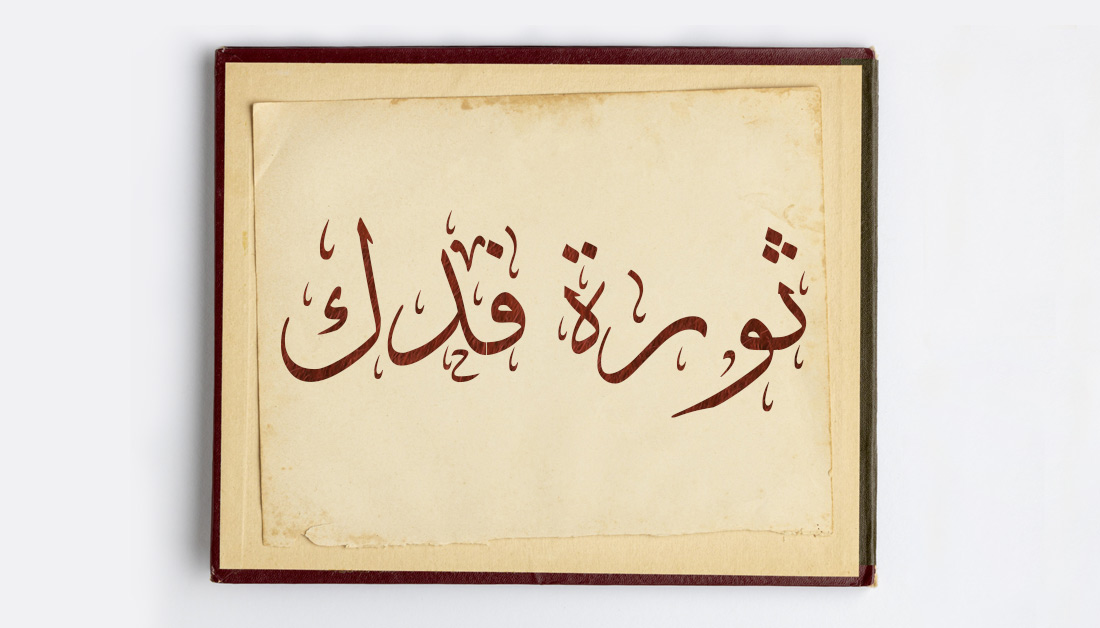 ثورة فدك